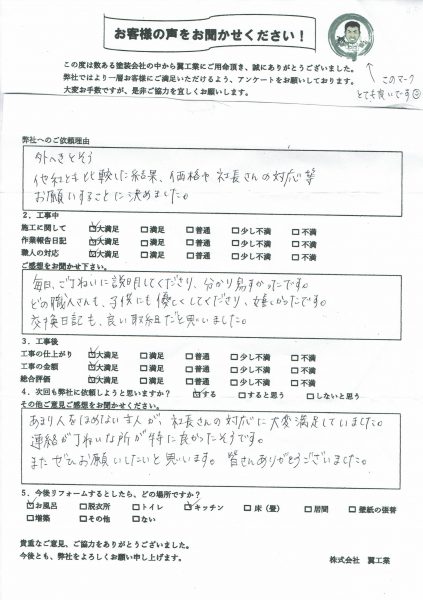 お客様の声をお聞かせください！
この度は数ある塗装会社の中から翼工業にご用命頂き、誠にありがとうございました。
弊社ではより一層お客様にご満足いただけるよう、アンケートをお願いしております。
大変お手数ですが、是非ご協力を宜しくお願い致します。
このマーク
とても良いです☺
弊社へのご依頼理由
外へきとそう
他社とも比較した結果、価格や社長さんの対応等
お願いすることに決めました。
2．工事中
施工に関して ☑大満足 □満足 □普通 □少し不満 □不満
作業報告日記 ☑大満足 □満足 □普通 □少し不満 □不満
職人の対応 ☑大満足 □満足 □普通 □少し不満 □不満
ご感想をお聞かせ下さい。
毎日、ご丁ねいに説明してくださり、分かり易すかったです。
どの職人さんも、子供にも優しくしてくださり、嬉しかったです。
交換日記も、良い取組だと思いました。
3．工事後
工事の仕上がり ☑大満足 □満足 □普通 □少し不満 □不満
工事の金額 ☑大満足 □満足 □普通 □少し不満 □不満
総合評価 ☑大満足 □満足 □普通 □少し不満 □不満
4．次回も弊社に依頼しようと思いますか？ ☑する □すると思う □しないと思う
その他ご意見ご感想をお聞かせください。
あまり人をほめない主人が、社長さんの対応に大変満足していました。
連絡が丁ねいな所が特に良かったそうです。
またぜひお願いしたいと思います。 皆さんありがとうございました。
5．今後リフォームするとしたら、どの場所ですか？
☑お風呂 □脱衣所 □トイレ ☑キッチン □床（畳） □居間 □壁紙の張替
□増築 □その他 □ない
貴重なご意見、ご協力をありがとうございました。
今後とも、弊社をよろしくお願い申し上げます。
株式会社 翼工業